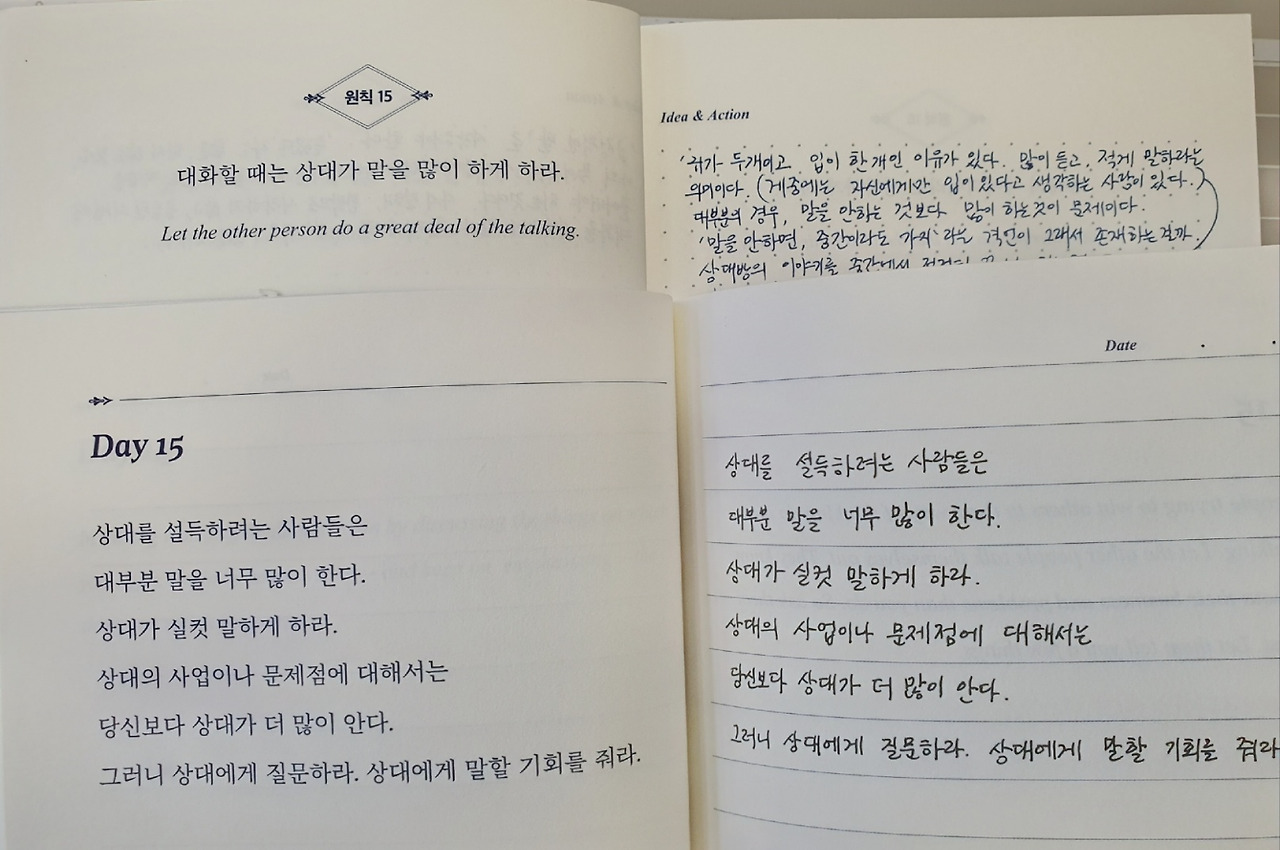 원칙 15
대화할 때는 상대가 말을 많이 하게 하라.
Let the other person do a great deal of the talking.
Idea & Action
'귀가 두개이고 입이 한개인 이유가 있다. 많이 듣고, 적게 말하라는
의미이다. (게중에는 자신에게만 입이 있다고 생각하는 사람이 있다.)
대부분의 경우, 말을 안하는 것보다 많이 하는것이 문제이다.
'말을 안하면, 중간이라도 가지' 라는 격언이 그래서 존재하는
상대방의 이야기를 중간에서
Day 15
상대를 설득하려는 사람들은
대부분 말을 너무 많이 한다.
상대가 실컷 말하게 하라.
상대의 사업이나 문제점에 대해서는
당신보다 상대가 더 많이 안다.
그러니 상대에게 질문하라. 상대에게 말할 기회를 줘라.
Date . .
상대를 설득하려는 사람들은
대부분 말을 너무 많이 한다.
상대가 실컷 말하게 하라.
상대의 사업이나 문제점에 대해서는
당신보다 상대가 더 많이 안다.
그러니 상대에게 질문하라. 상대에게 말할 기회를 줘라